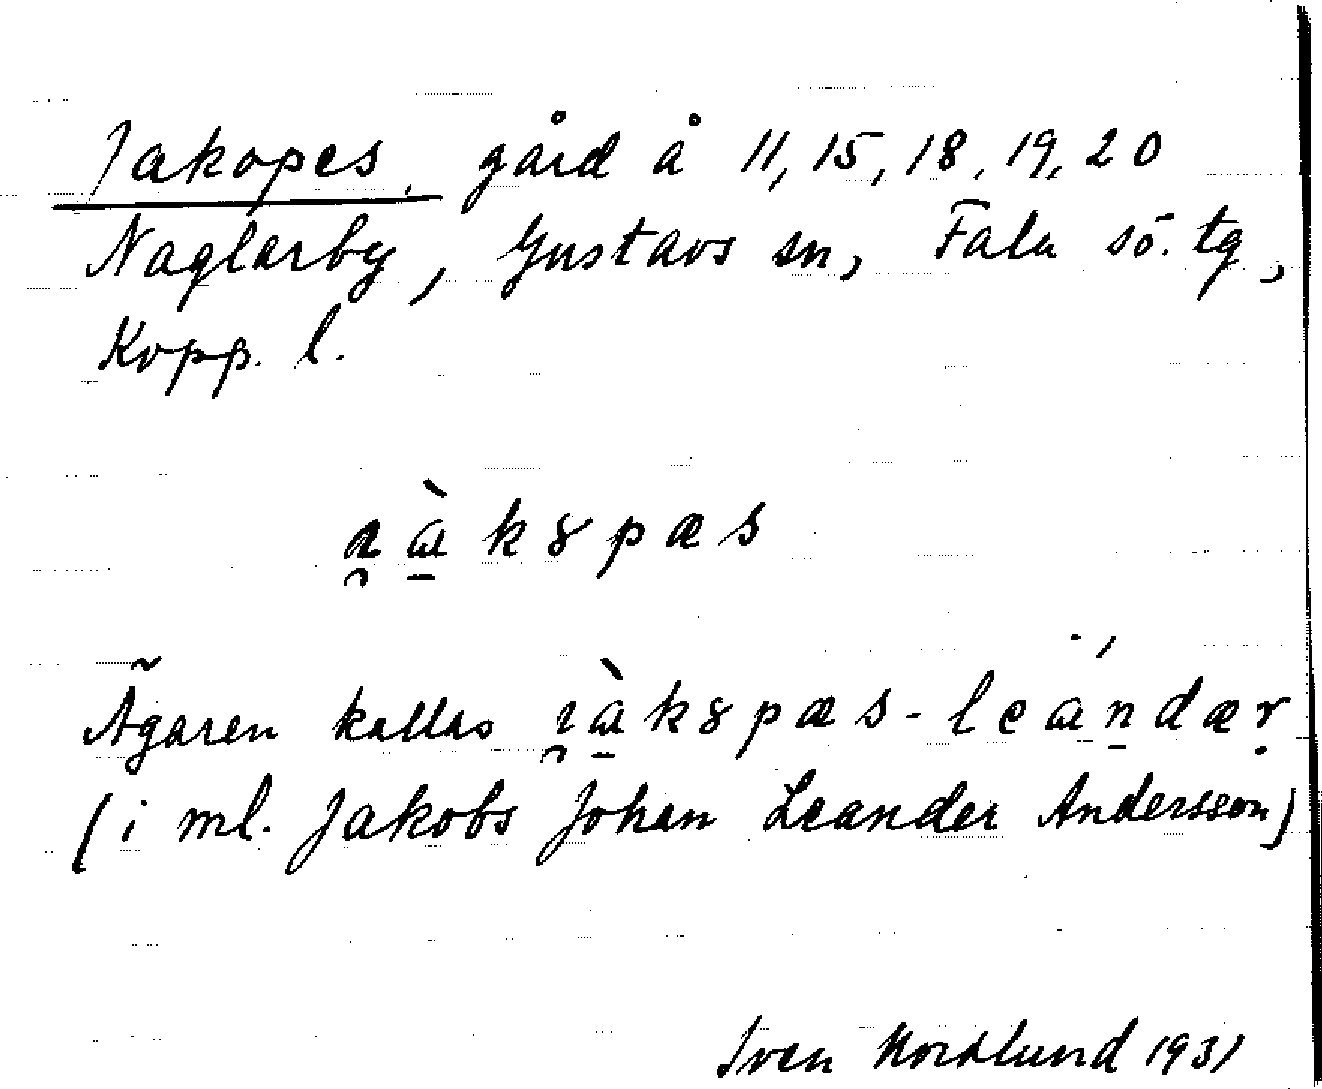 Jakopes, gård å 11, 15, 18, 19, 20
Naglarby, Gustavs sn, Falu sö. tg,
Kopp. l.
Ägaren kallas
(i ml. Jakobs Johan Leander Andersson)
Sven Nordlund 1931